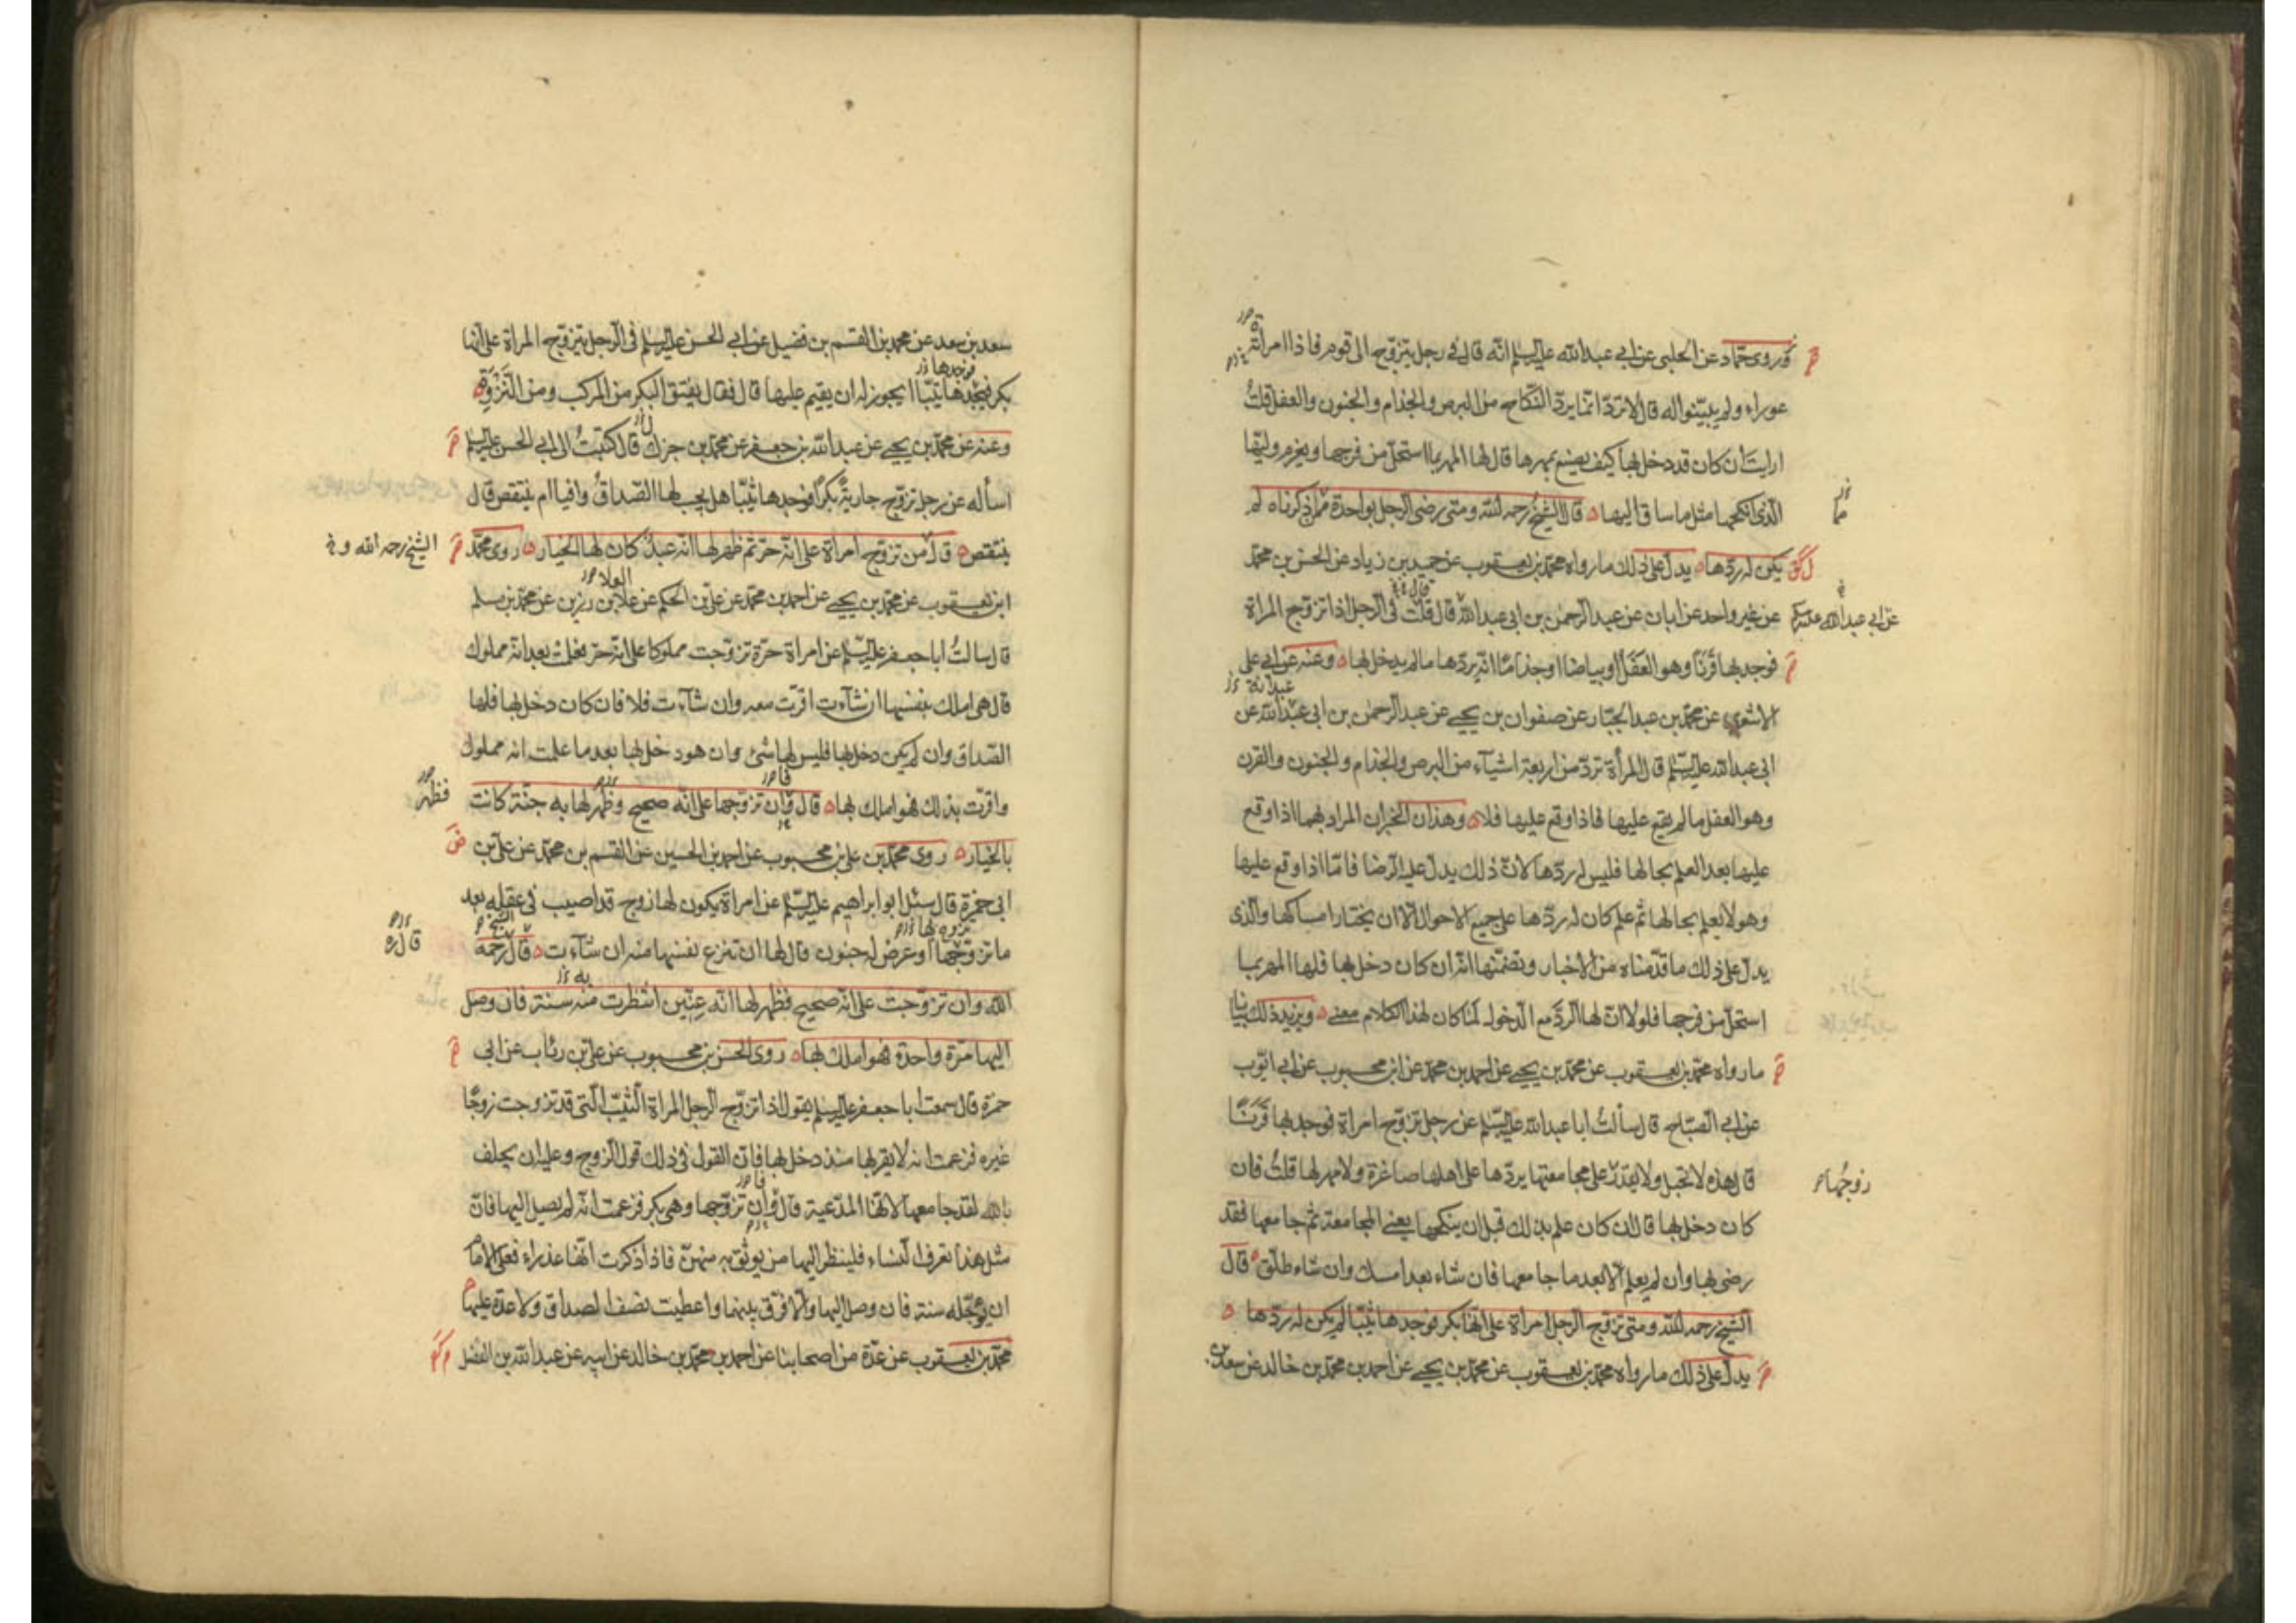 وروى حماد عن الحلبي عن ابي عبدالله عليه السلم انه قال في رجل يتزوج الى قوم فاذا امراته
عوراء ولم يبينوا له قال لا ترد انما يرد النكاح من البرص والجذام والجنون والعفل قلت
ارايت ان كان قد دخل بها كيف يصنع بمهرها قال لها المهر بما استحل من فرجها ويغرم وليها
الذي انكحها مثل ما ساق اليها قال الشيخ رحمه الله ومتى رضى الرجل بواحدة مما ذكرناه لم
يكن له ردها يدل على ذلك ما رواه محمد بن يعقوب عن حميد بن زياد عن الحسن بن محمد
عن غير واحد عن ابان عن عبد الرحمن بن ابي عبدالله قال قلت في الرجل اذا تزوج المراة
عن ابي عبدالله عليه السلم
فوجد بها قرنا وهو العفل او بياضا او جذاما انه يردها ما لم يدخل بها وعنه عن ابي علي
الاشعري عن محمد بن عبد الجبار عن صفوان بن يحيى عن عبد الرحمن بن ابي عبدالله عن
ابي عبدالله عليه السلم قال المرأة ترد من اربعة اشياء من البرص والجذام والجنون والقرن
وهو العفل ما لم يقع عليها فاذا وقع عليها فلا وهذان الخبران المراد بهما اذا وقع
عليها بعد العلم بحالها فليس له ردها لان ذلك يدل على الرضا فاما اذا وقع عليها
وهو لا يعلم بحالها ثم علم كان له ردها على جميع الاحوال الا ان يختار امساكها والذي
يدل على ذلك ما قدمناه من الاخبار وتضمنها انه ان كان دخل بها فلها المهر بما
استحل من فرجها فلولا ان لها الرد مع الدخول لما كان لهذا الكلام معنى ويزيد ذلك بيانا
ما رواه محمد بن يعقوب عن محمد بن يحيى عن احمد بن محمد عن ابن محبوب عن ابي ايوب
عن ابي الصباح قال سألت ابا عبدالله عليه السلم عن رجل تزوج امراة فوجد بها قرنا
قال هذه لا تحبل ولا يقدر على مجامعتها يردها على اهلها صاغرة ولا مهر لها قلت فان
زوجها
كان دخل بها قال ان كان علم بذلك قبل ان ينكحها يعني المجامعة ثم جامعها فقد
رضى بها وان لم يعلم الا بعد ما جامعها فان شاء بعد امسك وان شاء طلق قال
الشيخ رحمه الله ومتى تزوج الرجل امراة على انها بكر فوجدها ثيبا لم يكن له ردها
يدل على ذلك ما رواه محمد بن يعقوب عن محمد بن يحيى عن احمد بن محمد بن خالد عن سعد بن
سعد بن سعد عن محمد بن القسم بن فضيل عن ابي الحسن عليه السلم في الرجل يتزوج المراة على انها
فوجدها
بكر فيجدها ثيبا ايجوز له ان يقيم عليها قال فقال يفتق البكر من المركب ومن النزوة
وعنه عن محمد بن يحيى عن عبدالله بن جعفر عن محمد بن جزك قال كتبت الى ابي الحسن عليه السلم
اسأله عن رجل تزوج جارية بكرا فوجدها ثيبا هل يجب لها الصداق وافيا ام ينتقص قال
ينتقص قال من تزوج امراة على انه حر ثم ظهر لها انه عبد كان لها الخيار روى محمد
الشيخ رحمه الله و
العلا
ابن يعقوب عن محمد بن يحيى عن احمد بن محمد عن علي بن الحكم عن علا بن رزين عن محمد بن مسلم
قال سالت ابا جعفر عليه السلم عن امراة حرة تزوجت مملوكا على انه حر فعلمت بعد انه مملوك
قال هي املك بنفسها ان شآءت اقرت معه وان شآءت فلا فان كان دخل بها فلها
الصداق وان لم يكن دخل بها فليس لها شئ وان هو دخل بها بعد ما علمت انه مملوك
واقرت بذلك فهو املك بها قال وان تزوجها على انه صحيح وظهر لها به جنة كانت
فظهر
بالخيار روى محمد بن علي بن محبوب عن احمد بن الحسين عن القسم بن محمد عن علي بن
ابي حمزة قال سئل ابو ابراهيم عليه السلم عن امراة يكون لها زوج قد اصيب في عقله بعد
ما تزوجها او عرض له جنون قال لها ان تنزع نفسها منه ان شآءت قال رحمه
الشيخ
الله وان تزوجت على انه صحيح فظهر لها انه عنين انتظرت منه سنة فان وصل
اليها مرة واحدة فهو املك بها روى الحسن بن محبوب عن علي بن رئاب عن ابي
حمزة قال سمعت ابا جعفر عليه السلم يقول اذا تزوج الرجل المراة الثيب التي قد تزوجت زوجا
غيره فزعمت انه لا يقربها منذ دخل بها فان القول في ذلك قول الزوج وعليه ان يحلف
بالله لقد جامعها لانها المدعية قال وان تزوجها وهي بكر فزعمت انه لم يصل اليها فان
مثل هذا تعرف النساء فلينظر اليها من يوثق به منهن فاذا ذكرت انها عذراء فعلى الامام
ان يؤجله سنة فان وصل اليها والا فرق بينهما واعطيت نصف الصداق ولا عدة عليها
محمد بن يعقوب عن عدة من اصحابنا عن احمد بن محمد بن خالد عن ابيه عن عبدالله بن الفضل